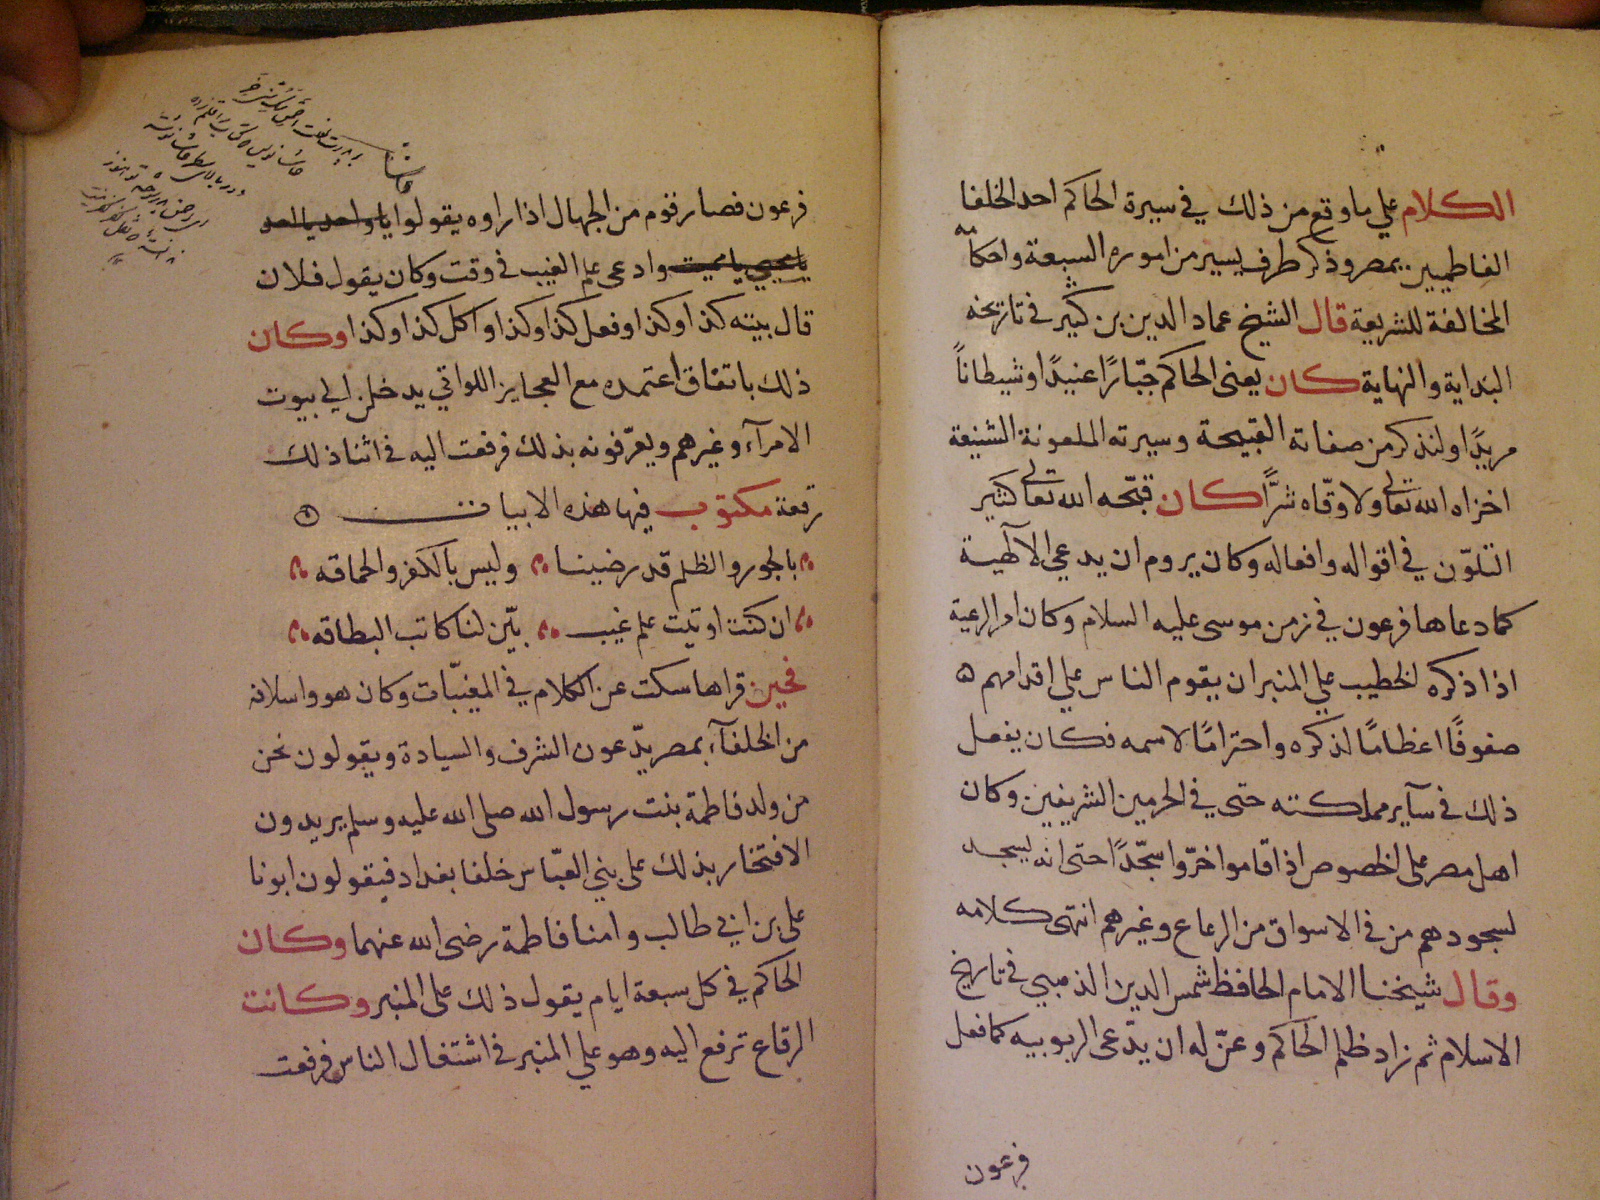 الكلام علي ما وقع من ذلك في سيرة الحاكم احد الخلفا
الفاطميين بمصر وذكر طرف يسير من اموره السبعة واحكامه
المخالفة للشريعة قال الشيخ عماد الدين بن كثير في تاريخه
البداية والنهاية كان يعنى الحاكم جبّارًا عنيدًا وشيطاناً
مريدًا ولنذكر من صفاته القبيحة وسيرته الملعونة الشنيعة
اخزاه الله تعالى ولا وقّاه شرًّا كان قبّحه الله تعالى كثير
التلوّن في اقواله وافعاله وكان يروم ان يدعي الالهية
كما دعاها فرعون في زمن موسى عليه السلام وكان امر الرعية
اذا ذكره الخطيب علي المنبر ان يقوم الناس علي اقدامهم
صفوفًا اعظامًا لذكره واحترامًا لاسمه فكان يفعل
ذلك في سآير مملكته حتى في الحرمين الشريفين وكان
اهل مصر على الخصوص اذا قاموا خرّوا سجّدًا حتى انه ليسجد
لسجودهم من في الاسواق من الرعاع وغيرهم انتهى كلامه
وقال شيخنا الامام الحافظ شمس الدين الذهبي في تاريخ
الاسلام ثم زاد ظلم الحاكم وعنّ له ان يدّعى الربوبيه كما فعل
فرعون
فرعون فصار قوم من الجهال اذا راوه يقولوا يا واحد يا احد
يا محيي يا مميت وادعى علم الغيب في وقت وكان يقول فلان
قال ببيته كذا وكذا وفعل كذا وكذا واكل كذا وكذا وكان
ذلك باتفاق اعتمده مع العجايز اللواتي يدخلن الي بيوت
الامرآء وغيرهم ويعرّفونه بذلك فرفعت اليه في اثنا ذلك
رقعة مكتوب فيها هذه الابيات
بالجور والظلم قد رضينا وليس بالكفر والحماقه
ان كنت اوتيت علم غيب بيّن لنا كاتب البطاقه
فحين قراها سكت عن الكلام في المغيّبات وكان هو واسلافه
من الخلفآء بمصر يدّعون الشرف والسيادة ويقولون نحن
من ولد فاطمة بنت رسول الله صلى الله عليه وسلم يريدون
الافتخار بذلك على بني العبّاس خلفا بغداد فيقولون ابونا
على بن ابي طالب وامنا فاطمة رضى الله عنهما وكان
الحاكم في كل سبعة ايام يقول ذلك على المنبر وكانت
الرقاع ترفع اليه وهو علي المنبر في اشتغال الناس فرفعت